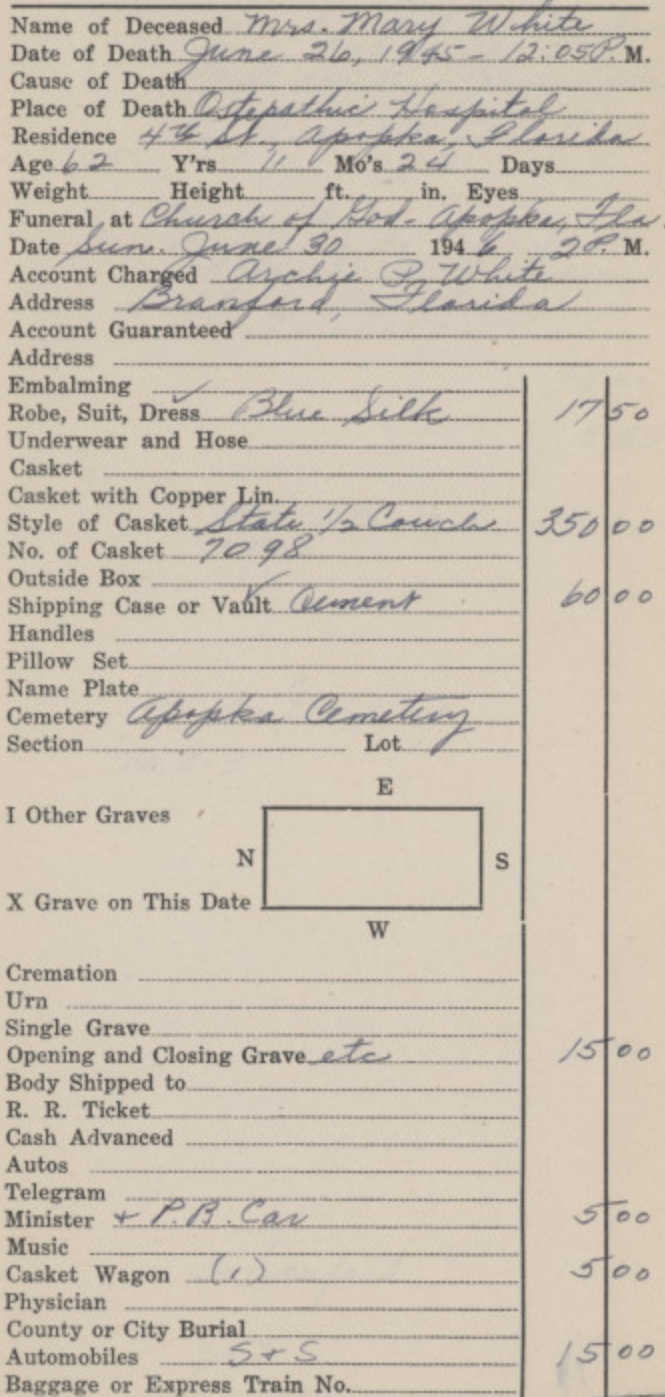 Name of Deceased Mrs. Mary White
Date of Death June 26, 1945 - 12:05 P. M.
Cause of Death
Place of Death Ostepathic Hospital
Residence 4th St., Apopka, Florida
Age 62 Y'rs 11 Mo's 24 Days
Weight Height ft. in. Eyes
Funeral at Church of God - Apopka, Fla.
Date Sun. June 30 1946 2 P. M.
Account Charged Archie P. White
Address Branford, Florida
Account Guaranteed
Address
Embalming ✓
Robe, Suit, Dress Blue Silk 17 50
Underwear and Hose
Casket
Casket with Copper Lin.
Style of Casket State 1/2 Couch 350 00
No. of Casket 7098
Outside Box
Shipping Case or Vault ✓ Cement 60 00
Handles
Pillow Set
Name Plate
Cemetery Apopka Cemetery
Section Lot
E
I Other Graves
N S
X Grave on This Date
W
Cremation
Urn
Single Grave
Opening and Closing Grave etc 15 00
Body Shipped to
R. R. Ticket
Cash Advanced
Autos
Telegram
Minister + P.B. Car 5 00
Music
Casket Wagon (1) 5 00
Physician
County or City Burial
Automobiles S + S 15 00
Baggage or Express Train No.